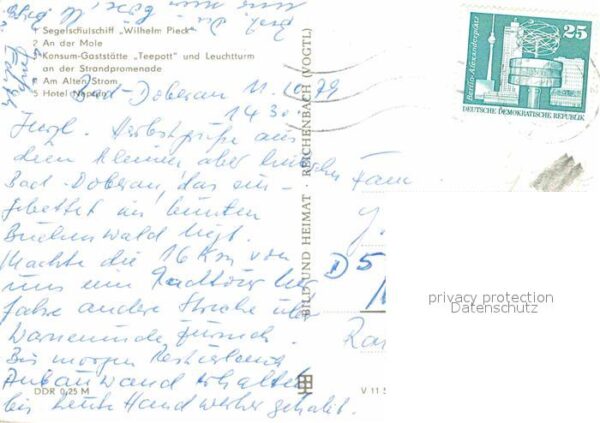 1 Segelschulschiff „Wilhelm Pieck“
2 An der Mole
3 Konsum-Gaststätte „Teepott“ und Leuchtturm
an der Strandpromenade
4 Am Alten Strom
5 Hotel Neptun
Bad-Doberan 11.10.79
14 30
Herbstgrüße aus
dem kleinen aber
Bad-Doberan, das ein-
gebettet im bunten
Buchenwald liegt.
Machte die 16 km von
uns eine Radtour her
fahre andere Strecke über
Warnemünde zurück.
Bis morgen
Anbauwand erhalten
bis heute Handwerker gehabt.
Fam
D 5
DDR 0,25 M
BILD UND HEIMAT · REICHENBACH (VOGTL)
V 11 5
25
Berlin-Alexanderplatz
DEUTSCHE DEMOKRATISCHE REPUBLIK
privacy protection
Datenschutz